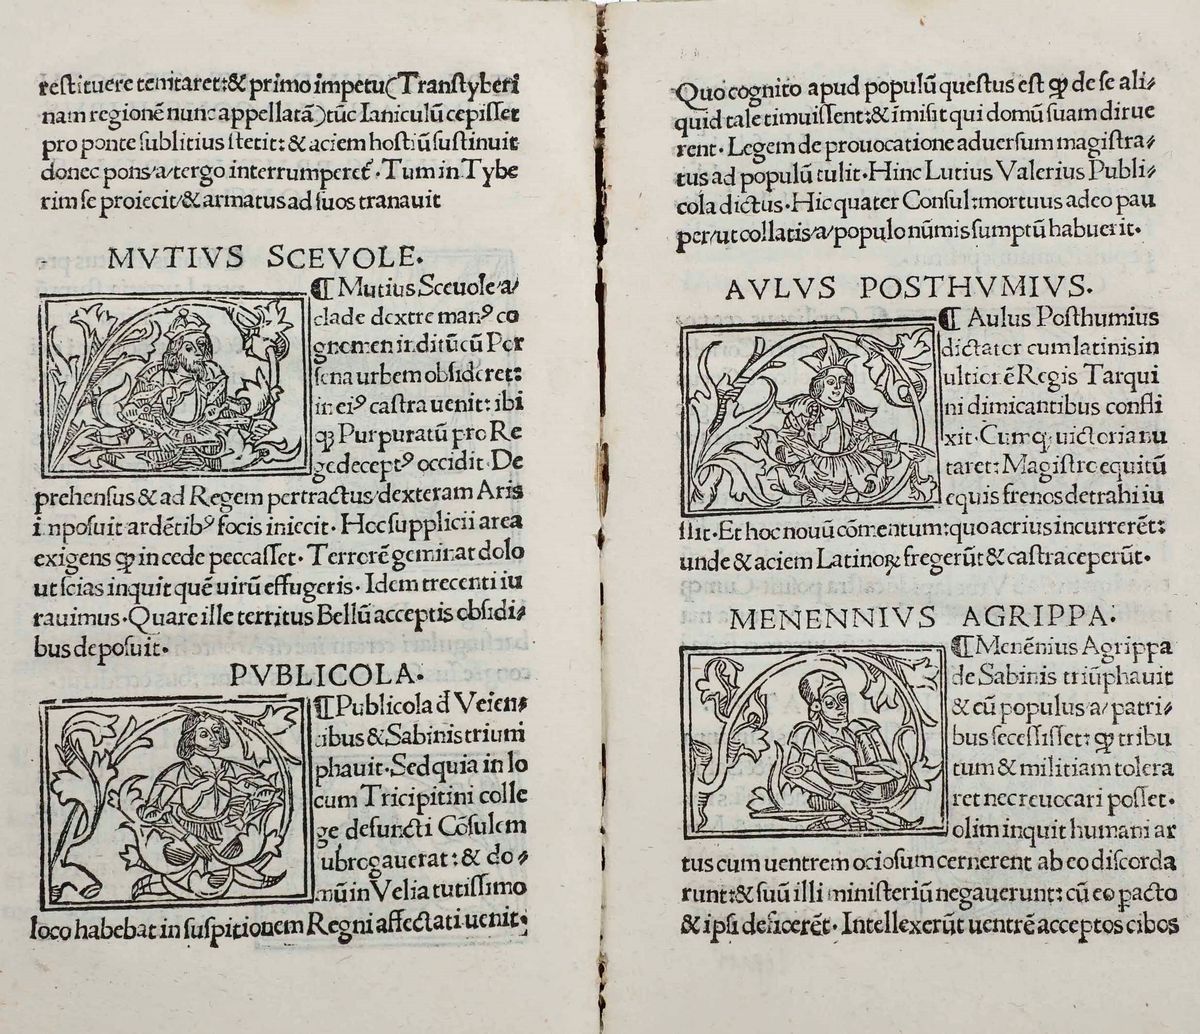 reſtituere tentaret:& primo impetu(Tranſtyberi
nam regionē nunc appellatā)tūc Ianiculū cepiſſet
pro ponte ſublitius ſtetit: & aciem hoſtiū ſuſtinuit
donec pons/a/tergo interrumperet᷒ · Tum in Tybe
rim ſe proiecit/& armatus ad ſuos tranauit
MVTIVS SCEVOLE·
¶ Mutius Sceuole/a/
clade dextre manꝰ co
gnomen inditū cū Per
ſena urbem obſideret:
in eiꝰ caſtra uenit: ibi
qꝫ Purpuratū pro Re
ge deceptꝰ occidit· De
prehenſus & ad Regem pertractus/dexteram Aris
inpoſuit ardētibꝰ focis iniecit· Hoc ſupplicii area
exigens ꝙ in cede peccaſſet· Terrorē geminat dolo
ut ſcias inquit quē uirū effugeris· Idem trecenti iu
rauimus· Quare ille territus Bellū acceptis obſidi⸗
bus depoſuit·
PVBLICOLA·
¶ Publicola đ Veien⸗
tibus & Sabinis trium
phauit· Sed quia in lo
cum Tricipitini colle
ge defuncti Cōſulem
ubrogauerat: & do⸗
mū in Velia tutiſſimo
loco habebat in ſuſpitionem Regni affectati uenit·
Quo cognito apud populū queſtus eſt ꝙ de ſe ali⸗
quid tale timuiſſent:& īmiſit qui domū ſuam dirue
rent· Legem de prouocatione aduerſum magiſtra⸗
tus ad populū tulit· Hinc Lutius Valerius Publi⸗
cola dictus· Hic quater Conſul:mortuus adeo pau
per/ut collatis/a/populo nūmis ſumptū habuerit·
AVLVS POSTHVMIVS·
¶ Aulus Poſthumius
dictator cum latinis in
ultiorē Regis Tarqui
ni dimicantibus confli
xit· Cumqꝫ uictoria nu
taret: Magiſtro equitū
equis frenos detrahi iu
ſſit· Et hoc nouū cōmentum:quo acrius incurrerēt:
unde & aciem Latinoꝝ fregerūt & caſtra ceperūt·
MENENNIVS AGRIPPA:
¶ Menēnius Agrippa
de Sabinis triūphauit
& cū populus/a/patri⸗
bus ſeceſſiſſet: ꝙ tribu
tum & militiam tolera
ret nec reuocari poſſet·
olim inquit humani ar
tus cum uentrem ocioſum cernerent ab eo diſcorda
runt:& ſuū illi miniſteriū negauerunt: cū eo pacto
& ipſi deficerēt· Intellexerūt uentrē acceptos cibos